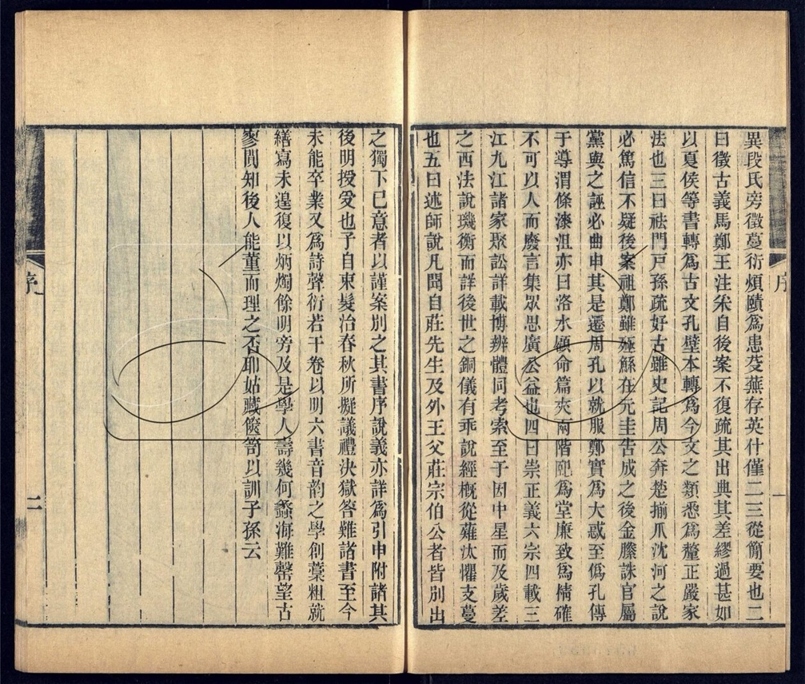 異段氏旁徵蔓衍煩賾為患芟蕪存英什僅二三從簡要也二
曰徵古義馬鄭王注采自後案不復疏其出典其差繆過甚如
以夏侯等書轉為古文孔壁本轉為今文之類悉為釐正嚴家
法也三曰祛門戶孫疏好古雖史記周公奔楚揃爪沈河之說
必篤信不疑後案祖鄭雖殛鯀在元圭告成之後金縢誅官屬
黨與之誣必曲申其是遷周孔以就服鄭實為大惑至偽孔傳
于導渭條漆沮亦曰洛水顧命篇夾兩階戺為堂廉致為情確
不可以人而廢言集眾思廣公益也四曰崇正義六宗四載三
江九江諸家聚訟詳載博辨體同考索至于因中星而及歲差
之西法說璣衡而詳後世之銅儀有乖說經概從薙汰懼支蔓
也五曰述師說凡聞自莊先生及外王父莊宗伯公者皆別出
之獨下己意者以謹案別之其書序說義亦詳為引申附諸其
後明授受也予自束髮治春秋所擬議禮決獄答難諸書至今
未能卒業又為詩聲衍若干卷以明六書音韵之學創藁粗就
繕寫未遑復以炳燭餘明旁及是學人壽幾何蠡海難罄望古
寥閴知後人能董而理之否耶姑藏篋笥以訓子孫云
序
一
序
二